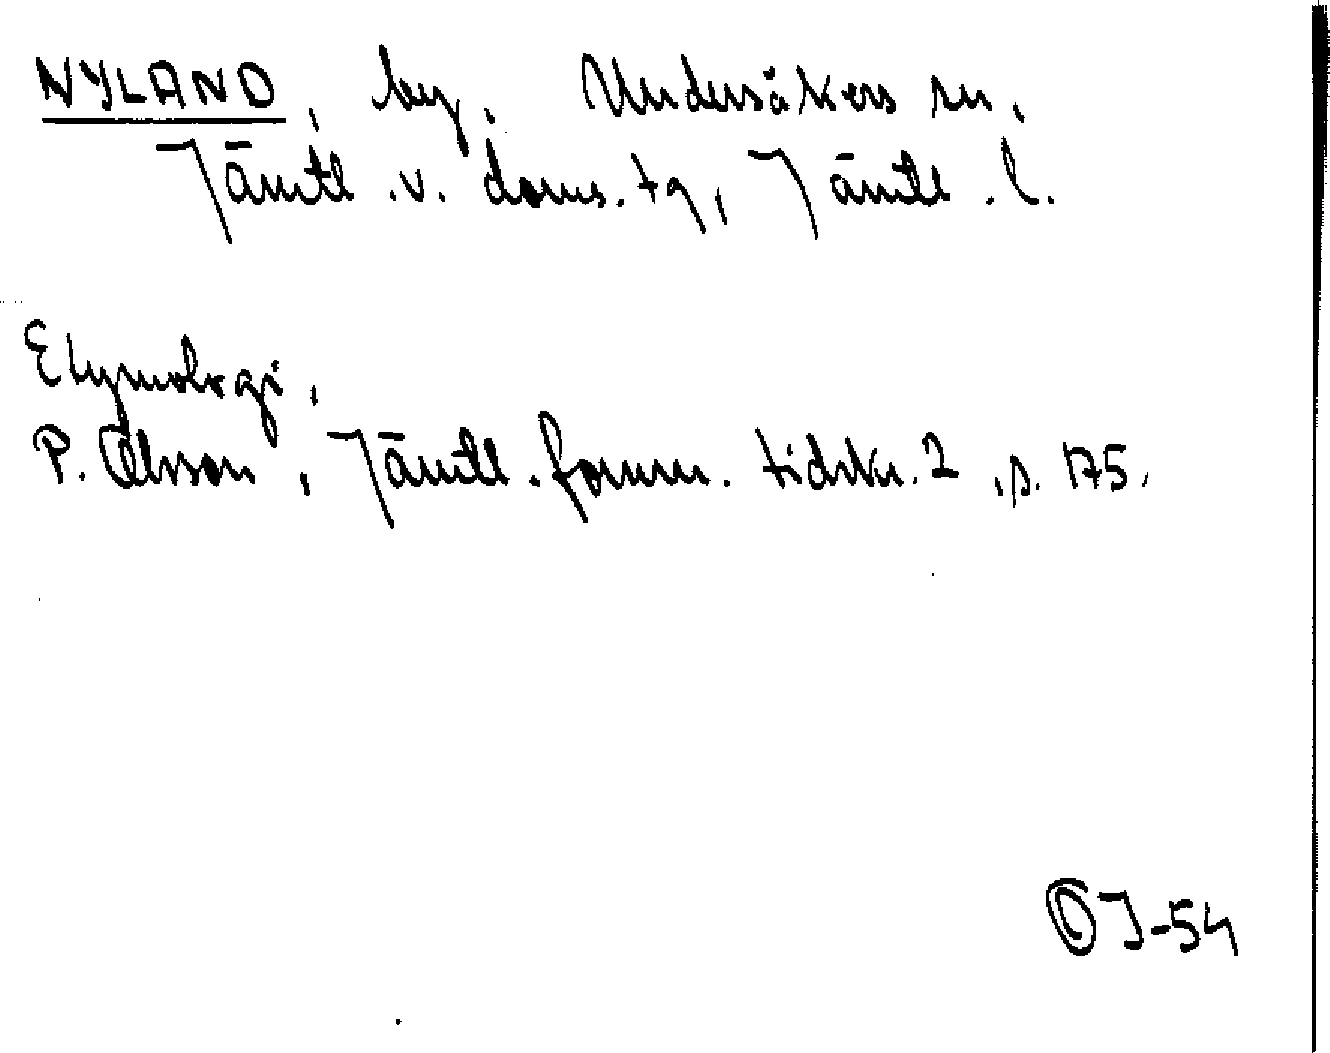 NYLAND, by, Undersåkers sn,
Jämtl. v. doms. tg, Jämtl. l.
Etymologi,
P. Olsson, Jämtl. fornm. tidskr. 2, s. 175,
OJ-54